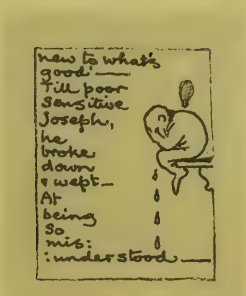 new to what's
good —
Till poor
sensitive
Joseph,
he
broke
down
& wept —
At
being
so
mis:
:understood —